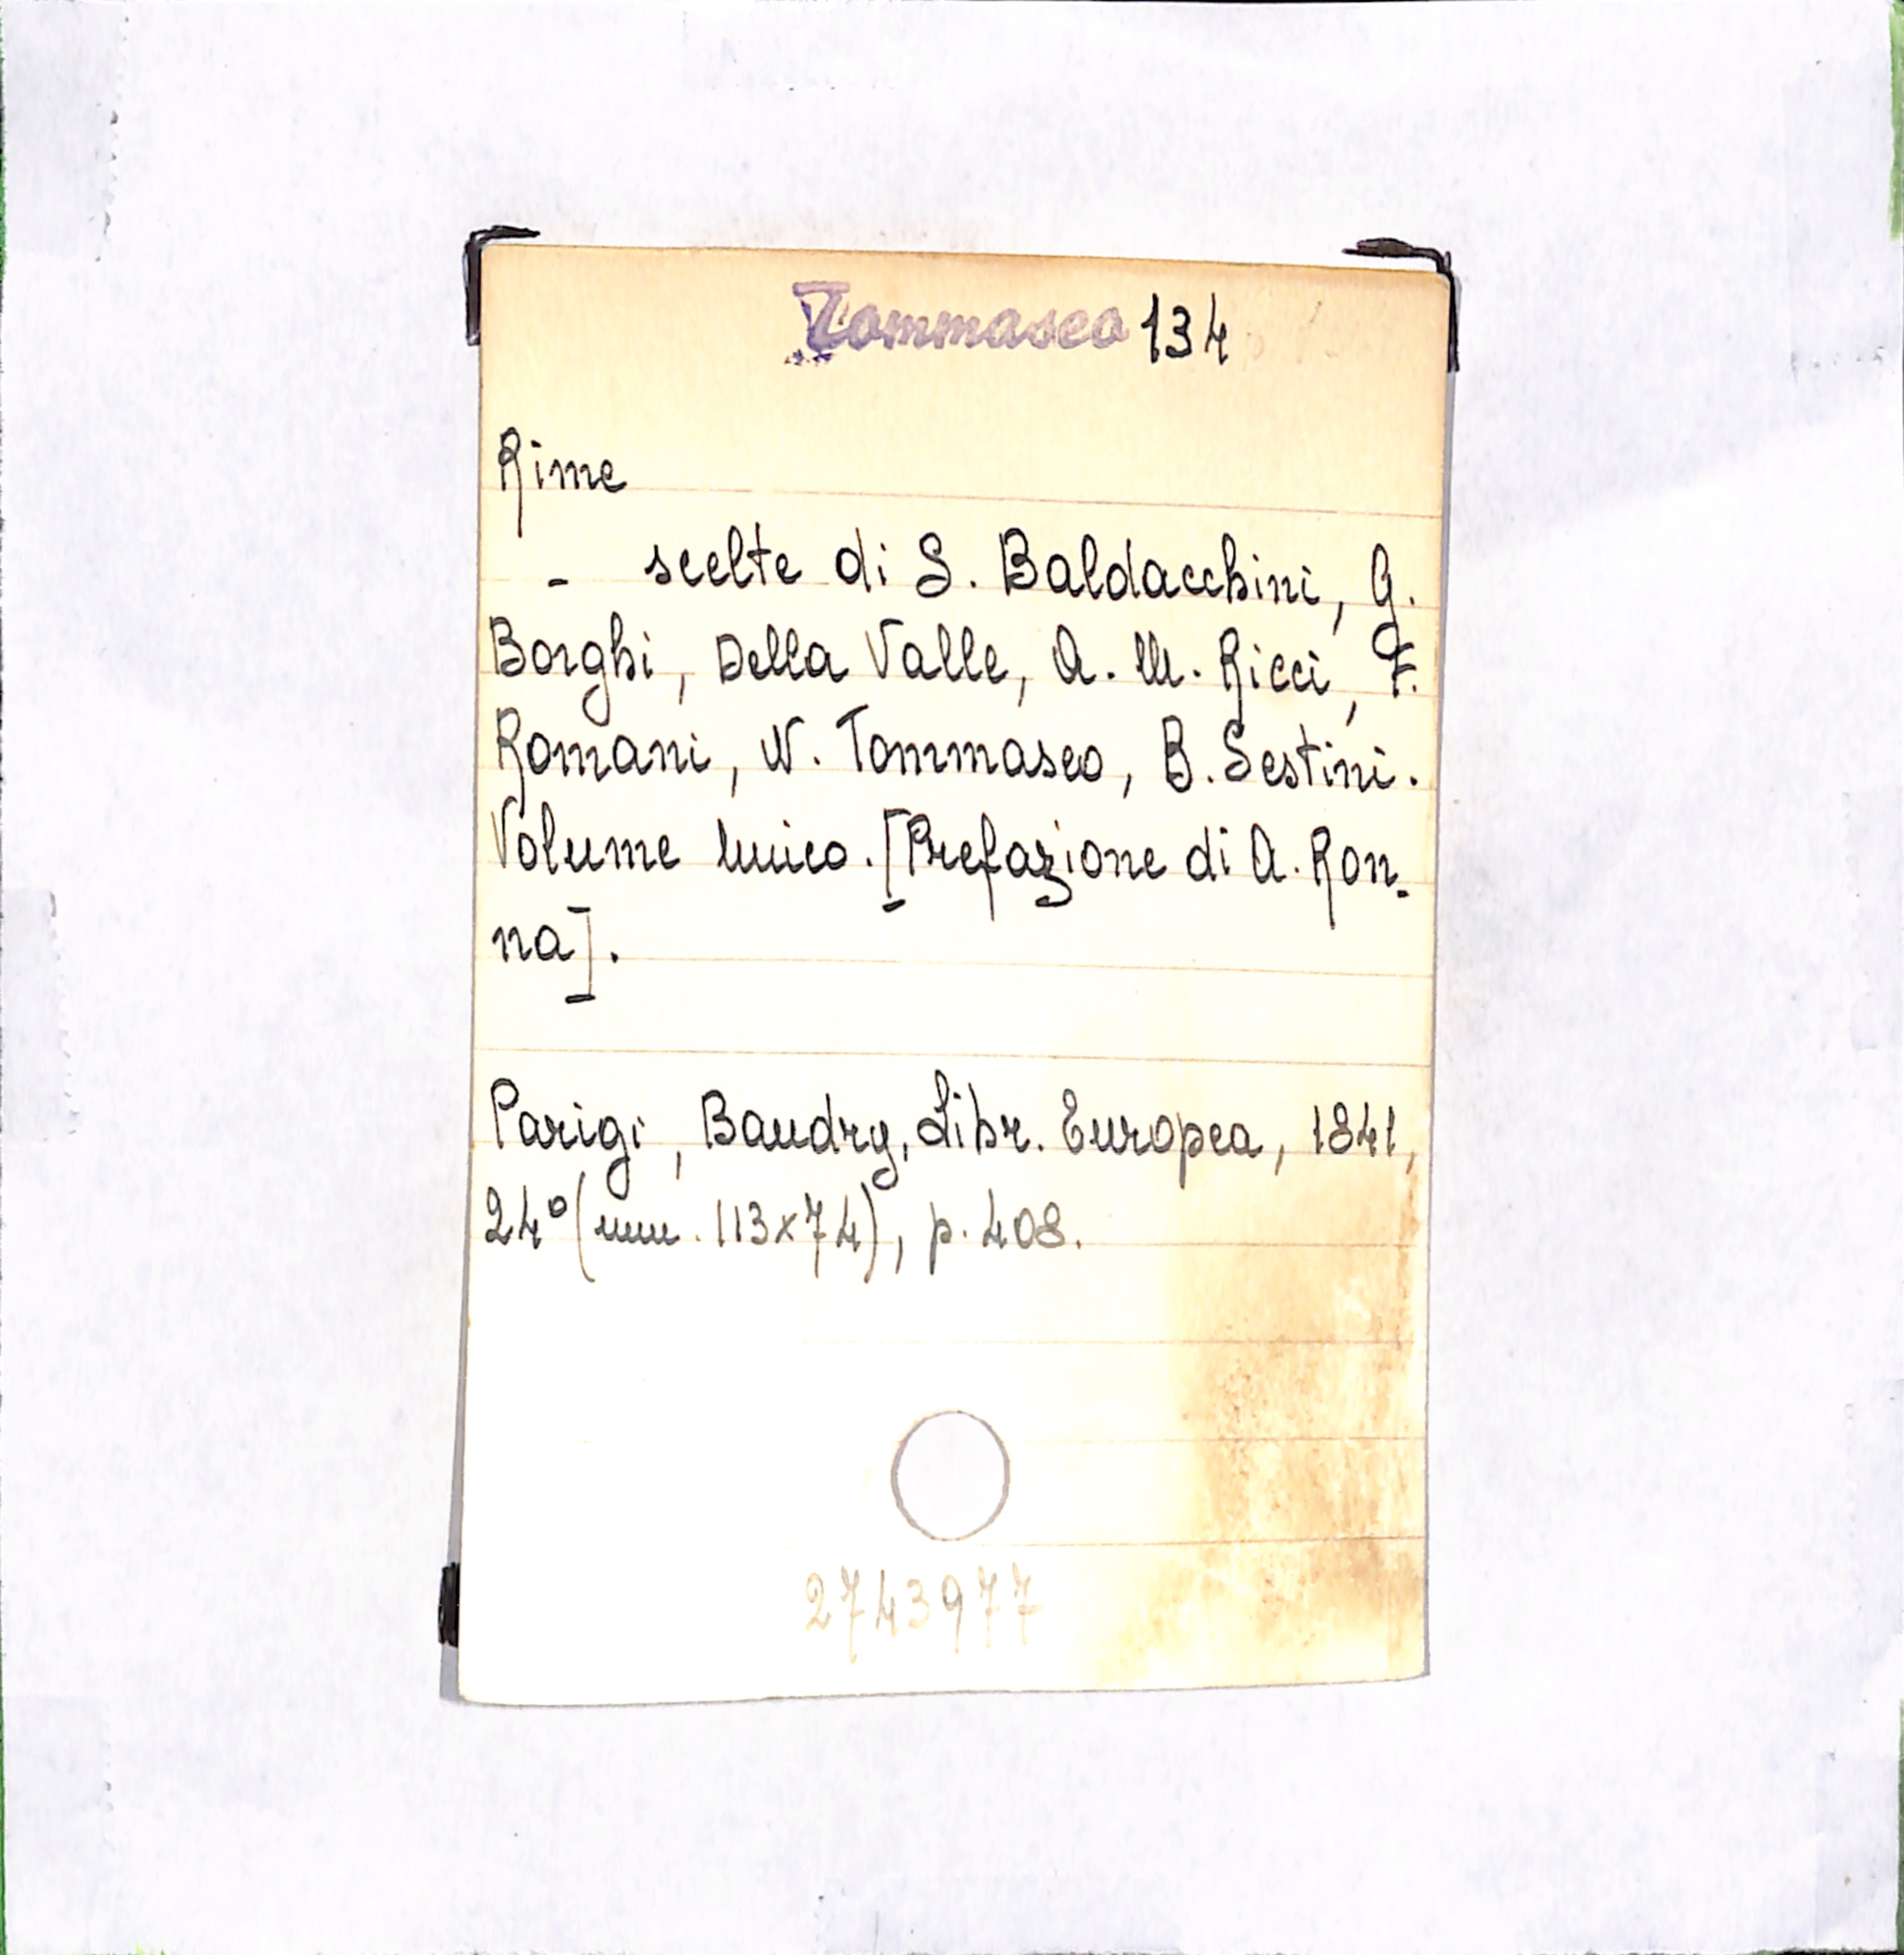 Tommaseo 134
Rime
- scelte di S. Baldacchini, G.
Borghi, Della Valle, A. M. Ricci, F.
Romani, N. Tommaseo, B. Sestini.
Volume unico. [Prefazione di A. Ron-
na].
Parigi, Baudry, Libr. Europea, 1841,
24° (mm. 113x74), p. 408.
2743977